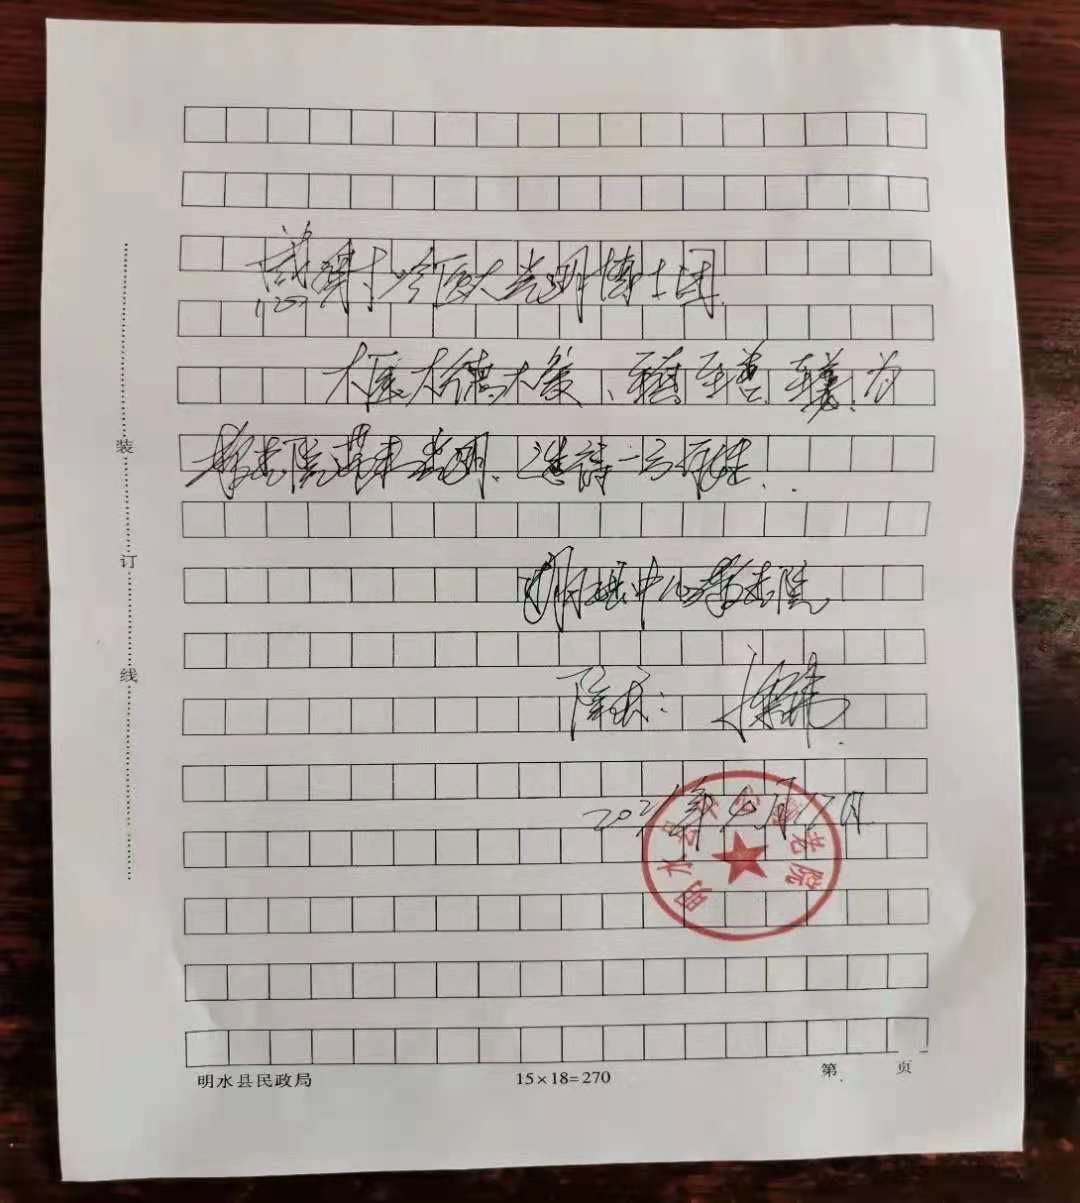 感谢哈医大光明博士团
大医大德大爱、至真至善至美、为
养老院带来光明、
明水县中心养老院
院长：
2021年4月17日
明水县中心养老院
装
订
线
明水县民政局
15×18=270
第 页